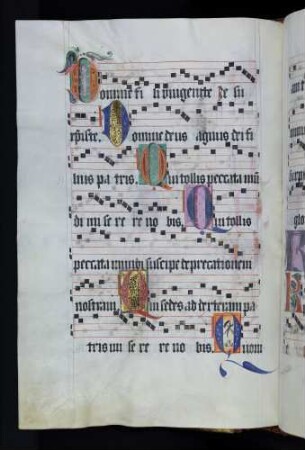 Domine fi li unigenite Je su
xpriste. Domine deus agnus dei fi
lius pa tris. Qui tollis peccata mun
di mi se re re no bis. Qui tollis
peccata mundi suscipe deprecationem
nostram. Qui sedes ad dexteram pa
tris mi se re re no bis. Quoni